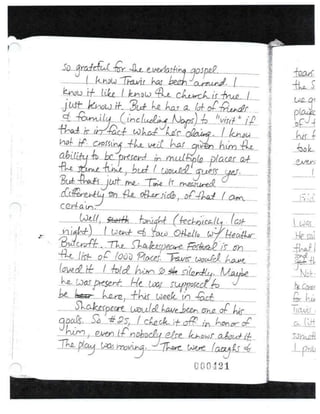 so grateful for the everlasting gospel.
I know Travis has been around. I
know it like I know the church is true. I
just know it. But he has a lot of friends
& family (including Naps) to "visit" if
that is in fact what he's doing. I know
not if crossing the veil has given him the
ability to be present in multiple places at
the same time, but I would guess yes.
But that's just me. Time is measured
differently on the other side, of that I am
certain.
Well, tonight (technically last
night) I went to see Othello w/ Heather
The Shakespeare Festival is on
the list of 1000 Places. Travis would have
loved it. I told him so silently. Maybe
he was present. He was supposed to
be here, this week in fact.
Shakespeare would have been one of his
goals. So #25, I check it off in honor of
him, even if nobody else knows about it.
The play was moving. There were laughs &
000421
tears
the S
his f
took
even
I
I was
He sai
that I
Not
Travel
a gift